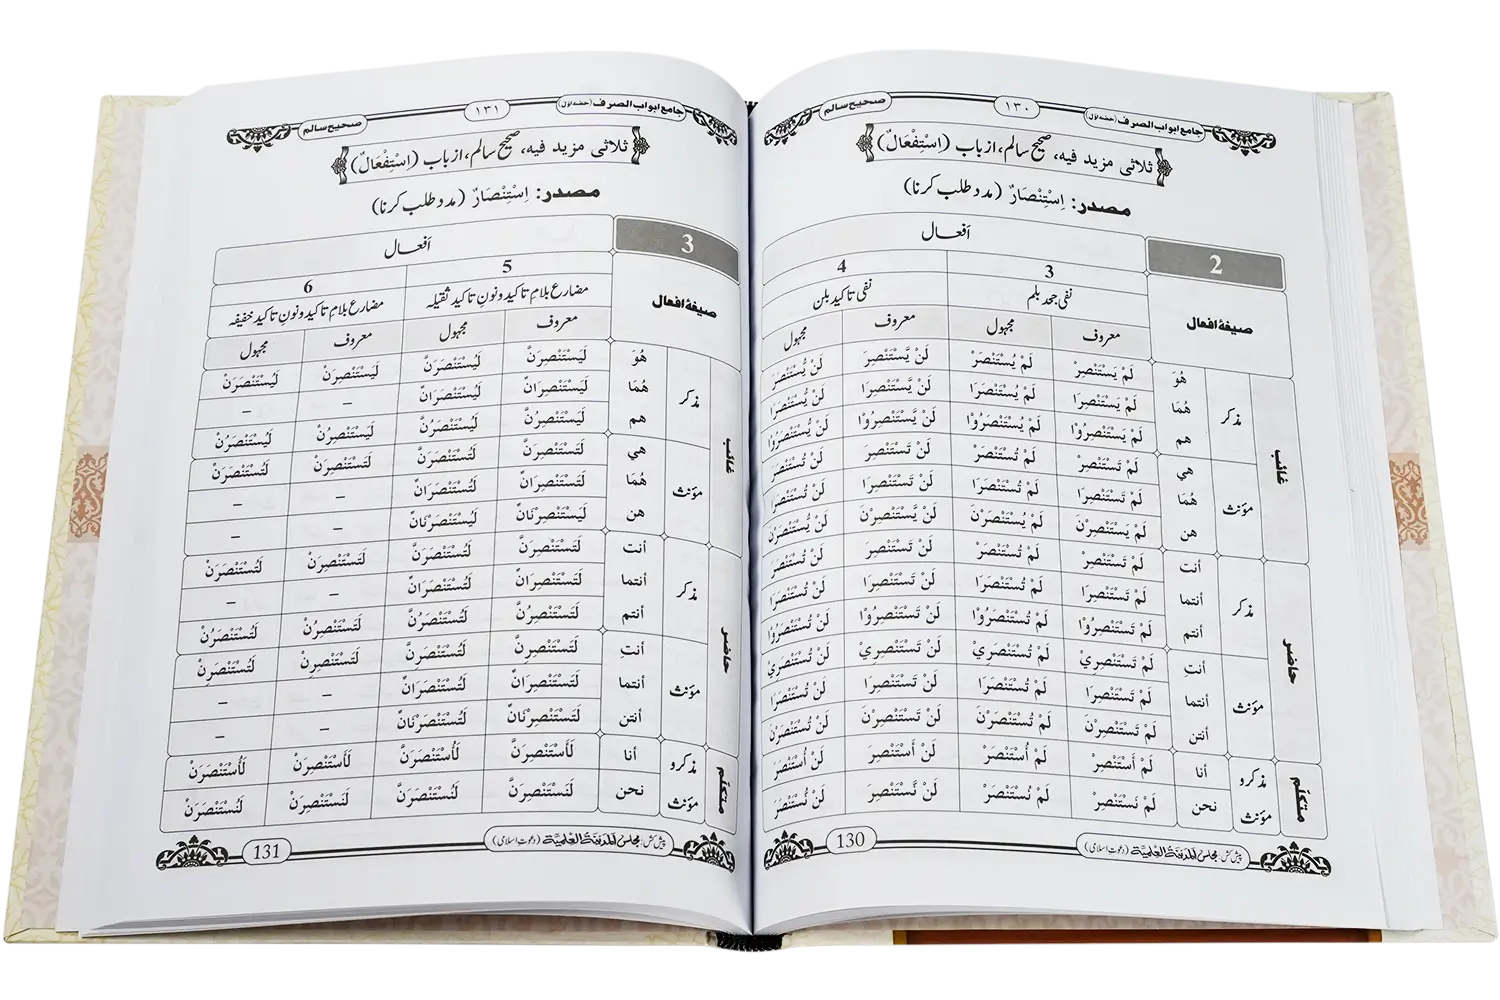 جامع ابواب الصرف (حصہ اول) ۱۳۰ صحیح سالم
ثلاثی مزید فیہ، صحیح سالم، از باب (اِسْتِفْعَالٌ)
مصدر: اِسْتِنْصَارٌ (مدد طلب کرنا)
2 أفعال
صیغۂ افعال 3 4
نفی جحد بلم نفی تاکید بلن
معروف مجہول معروف مجہول
غائب مذکر هُوَ لَمْ يَسْتَنْصِرْ لَمْ يُسْتَنْصَرْ لَنْ يَّسْتَنْصِرَ لَنْ يُّسْتَنْصَرَ
هُمَا لَمْ يَسْتَنْصِرَا لَمْ يُسْتَنْصَرَا لَنْ يَّسْتَنْصِرَا لَنْ يُّسْتَنْصَرَا
هم لَمْ يَسْتَنْصِرُوْا لَمْ يُسْتَنْصَرُوْا لَنْ يَّسْتَنْصِرُوْا لَنْ يُّسْتَنْصَرُوْا
مؤنث هي لَمْ تَسْتَنْصِرْ لَمْ تُسْتَنْصَرْ لَنْ تَسْتَنْصِرَ لَنْ تُسْتَنْصَرَ
هُمَا لَمْ تَسْتَنْصِرَا لَمْ تُسْتَنْصَرَا لَنْ تَسْتَنْصِرَا لَنْ تُسْتَنْصَرَا
هن لَمْ يَسْتَنْصِرْنَ لَمْ يُسْتَنْصَرْنَ لَنْ يَّسْتَنْصِرْنَ لَنْ يُّسْتَنْصَرْنَ
حاضر مذکر أنت لَمْ تَسْتَنْصِرْ لَمْ تُسْتَنْصَرْ لَنْ تَسْتَنْصِرَ لَنْ تُسْتَنْصَرَ
أنتما لَمْ تَسْتَنْصِرَا لَمْ تُسْتَنْصَرَا لَنْ تَسْتَنْصِرَا لَنْ تُسْتَنْصَرَا
أنتم لَمْ تَسْتَنْصِرُوْا لَمْ تُسْتَنْصَرُوْا لَنْ تَسْتَنْصِرُوْا لَنْ تُسْتَنْصَرُوْا
مؤنث أنتِ لَمْ تَسْتَنْصِرِيْ لَمْ تُسْتَنْصَرِيْ لَنْ تَسْتَنْصِرِيْ لَنْ تُسْتَنْصَرِيْ
أنتما لَمْ تَسْتَنْصِرَا لَمْ تُسْتَنْصَرَا لَنْ تَسْتَنْصِرَا لَنْ تُسْتَنْصَرَا
أنتن لَمْ تَسْتَنْصِرْنَ لَمْ تُسْتَنْصَرْنَ لَنْ تَسْتَنْصِرْنَ لَنْ تُسْتَنْصَرْنَ
متکلم مذکر و أنا لَمْ أَسْتَنْصِرْ لَمْ أُسْتَنْصَرْ لَنْ أَسْتَنْصِرَ لَنْ أُسْتَنْصَرَ
مؤنث نحن لَمْ نَسْتَنْصِرْ لَمْ نُسْتَنْصَرْ لَنْ نَّسْتَنْصِرَ لَنْ نُّسْتَنْصَرَ
پیش کش: مجلس المدینۃ العلمیۃ (دعوت اسلامی) 130
جامع ابواب الصرف (حصہ اول) ۱۳۱ صحیح سالم
ثلاثی مزید فیہ، صحیح سالم، از باب (اِسْتِفْعَالٌ)
مصدر: اِسْتِنْصَارٌ (مدد طلب کرنا)
3 أفعال
صیغۂ افعال 5 6
مضارع بلامِ تاکید و نونِ تاکید ثقیلہ مضارع بلامِ تاکید و نونِ تاکید خفیفہ
معروف مجہول معروف مجہول
غائب مذکر هُوَ لَيَسْتَنْصِرَنَّ لَيُسْتَنْصَرَنَّ لَيَسْتَنْصِرَنْ لَيُسْتَنْصَرَنْ
هُمَا لَيَسْتَنْصِرَانِّ لَيُسْتَنْصَرَانِّ – –
هم لَيَسْتَنْصِرُنَّ لَيُسْتَنْصَرُنَّ لَيَسْتَنْصِرُنْ لَيُسْتَنْصَرُنْ
مؤنث هي لَتَسْتَنْصِرَنَّ لَتُسْتَنْصَرَنَّ لَتَسْتَنْصِرَنْ لَتُسْتَنْصَرَنْ
هُمَا لَتَسْتَنْصِرَانِّ لَتُسْتَنْصَرَانِّ – –
هن لَيَسْتَنْصِرْنَانِّ لَيُسْتَنْصَرْنَانِّ – –
حاضر مذکر أنت لَتَسْتَنْصِرَنَّ لَتُسْتَنْصَرَنَّ لَتَسْتَنْصِرَنْ لَتُسْتَنْصَرَنْ
أنتما لَتَسْتَنْصِرَانِّ لَتُسْتَنْصَرَانِّ – –
أنتم لَتَسْتَنْصِرُنَّ لَتُسْتَنْصَرُنَّ لَتَسْتَنْصِرُنْ لَتُسْتَنْصَرُنْ
مؤنث أنتِ لَتَسْتَنْصِرِنَّ لَتُسْتَنْصَرِنَّ لَتَسْتَنْصِرِنْ لَتُسْتَنْصَرِنْ
أنتما لَتَسْتَنْصِرَانِّ لَتُسْتَنْصَرَانِّ – –
أنتن لَتَسْتَنْصِرْنَانِّ لَتُسْتَنْصَرْنَانِّ – –
متکلم مذکر و أنا لَأَسْتَنْصِرَنَّ لَأُسْتَنْصَرَنَّ لَأَسْتَنْصِرَنْ لَأُسْتَنْصَرَنْ
مؤنث نحن لَنَسْتَنْصِرَنَّ لَنُسْتَنْصَرَنَّ لَنَسْتَنْصِرَنْ لَنُسْتَنْصَرَنْ
پیش کش: مجلس المدینۃ العلمیۃ (دعوت اسلامی) 131